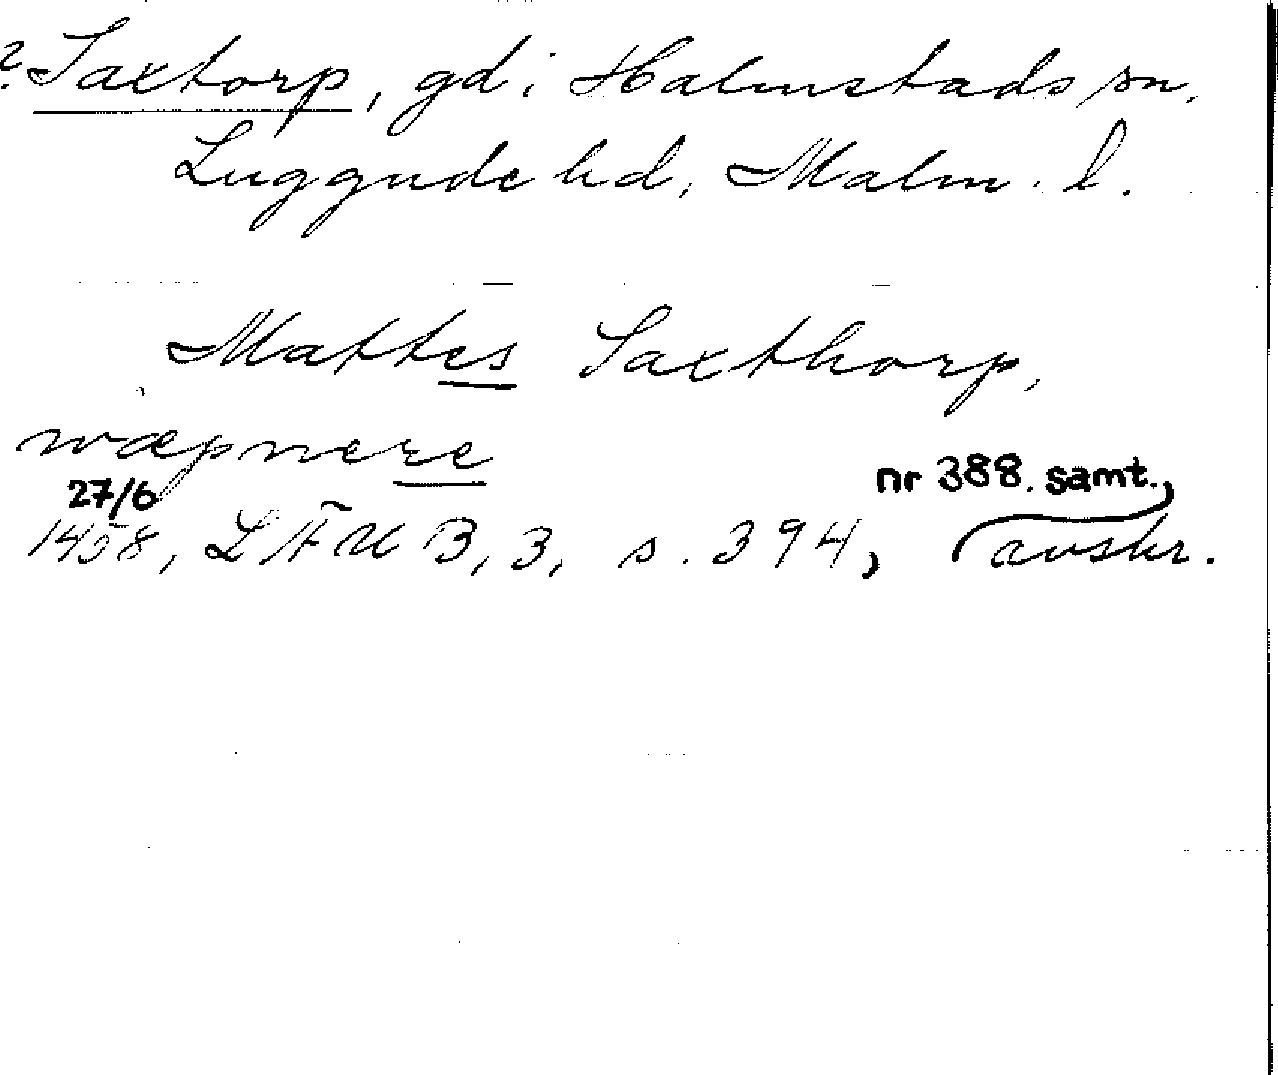 ? Saxtorp, gd i Halmstads sn.
Luggude hd, Malm. l.
Mattes Saxthorp,
wæpnere
27/6 nr 388. samt.,
1458, LÄUB, 3, s. 394, avskr.